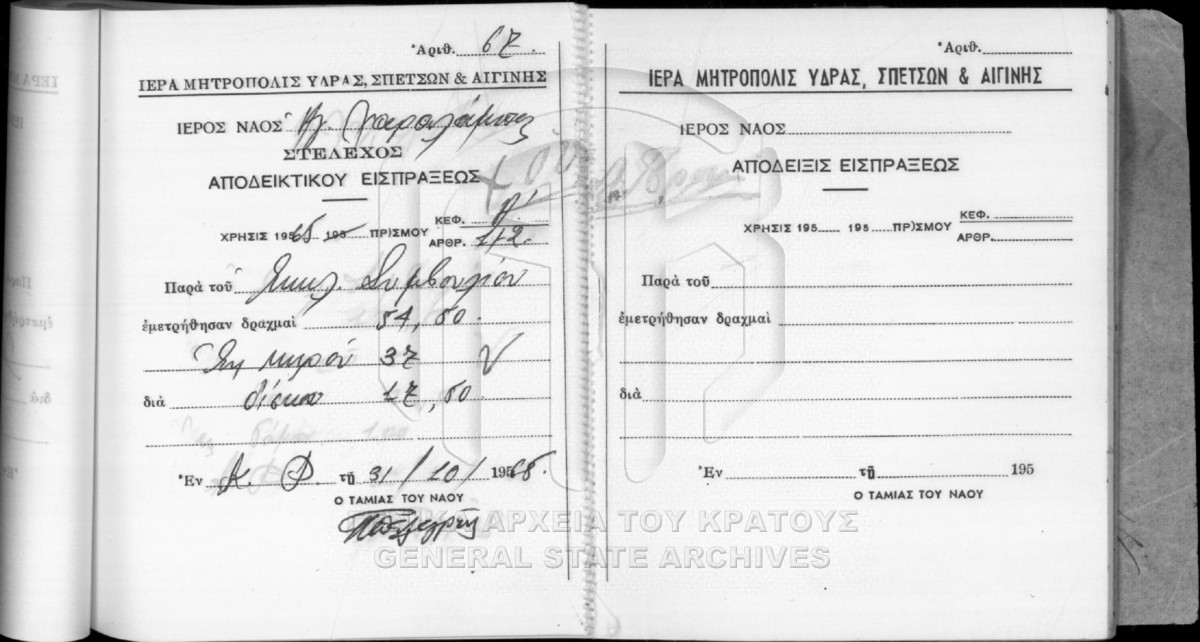 Ἀριθ. 67.
ΙΕΡΑ ΜΗΤΡΟΠΟΛΙΣ ΥΔΡΑΣ, ΣΠΕΤΣΩΝ & ΑΙΓΙΝΗΣ
ΙΕΡΟΣ ΝΑΟΣ Ἁγ. Χαραλάμπης
ΣΤΕΛΕΧΟΣ
ΑΠΟΔΕΙΚΤΙΚΟΥ ΕΙΣΠΡΑΞΕΩΣ
ΚΕΦ. Α'
ΧΡΗΣΙΣ 1965 195 ΠΡ)ΣΜΟΥ
ΑΡΘΡ. 1+2.
Παρὰ τοῦ Ἐκκλ. Συμβουλίου
ἐμετρήθησαν δραχμαὶ 54,50.
Ἐκ κηροῦ 37
διὰ δίσκου 17,50.
Ἐν Κ. Φ. τῇ 31/10/1965.
Ο ΤΑΜΙΑΣ ΤΟΥ ΝΑΟΥ
Ἀριθ.
ΙΕΡΑ ΜΗΤΡΟΠΟΛΙΣ ΥΔΡΑΣ, ΣΠΕΤΣΩΝ & ΑΙΓΙΝΗΣ
ΙΕΡΟΣ ΝΑΟΣ
ΑΠΟΔΕΙΞΙΣ ΕΙΣΠΡΑΞΕΩΣ
ΚΕΦ.
ΧΡΗΣΙΣ 195 195 ΠΡ)ΣΜΟΥ
ΑΡΘΡ.
Παρὰ τοῦ
ἐμετρήθησαν δραχμαὶ
διὰ
Ἐν τῇ 195
Ο ΤΑΜΙΑΣ ΤΟΥ ΝΑΟΥ
ΑΡΧΕΙΑ ΤΟΥ ΚΡΑΤΟΥΣ
GENERAL STATE ARCHIVES